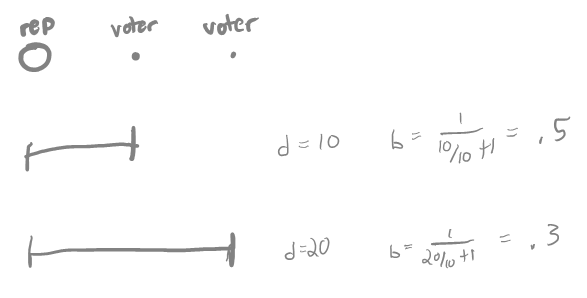 rep voter voter
d = 10 b = 1 / (10/10 + 1) = .5
d=20 b= 1 / (20/10 + 1) = .3